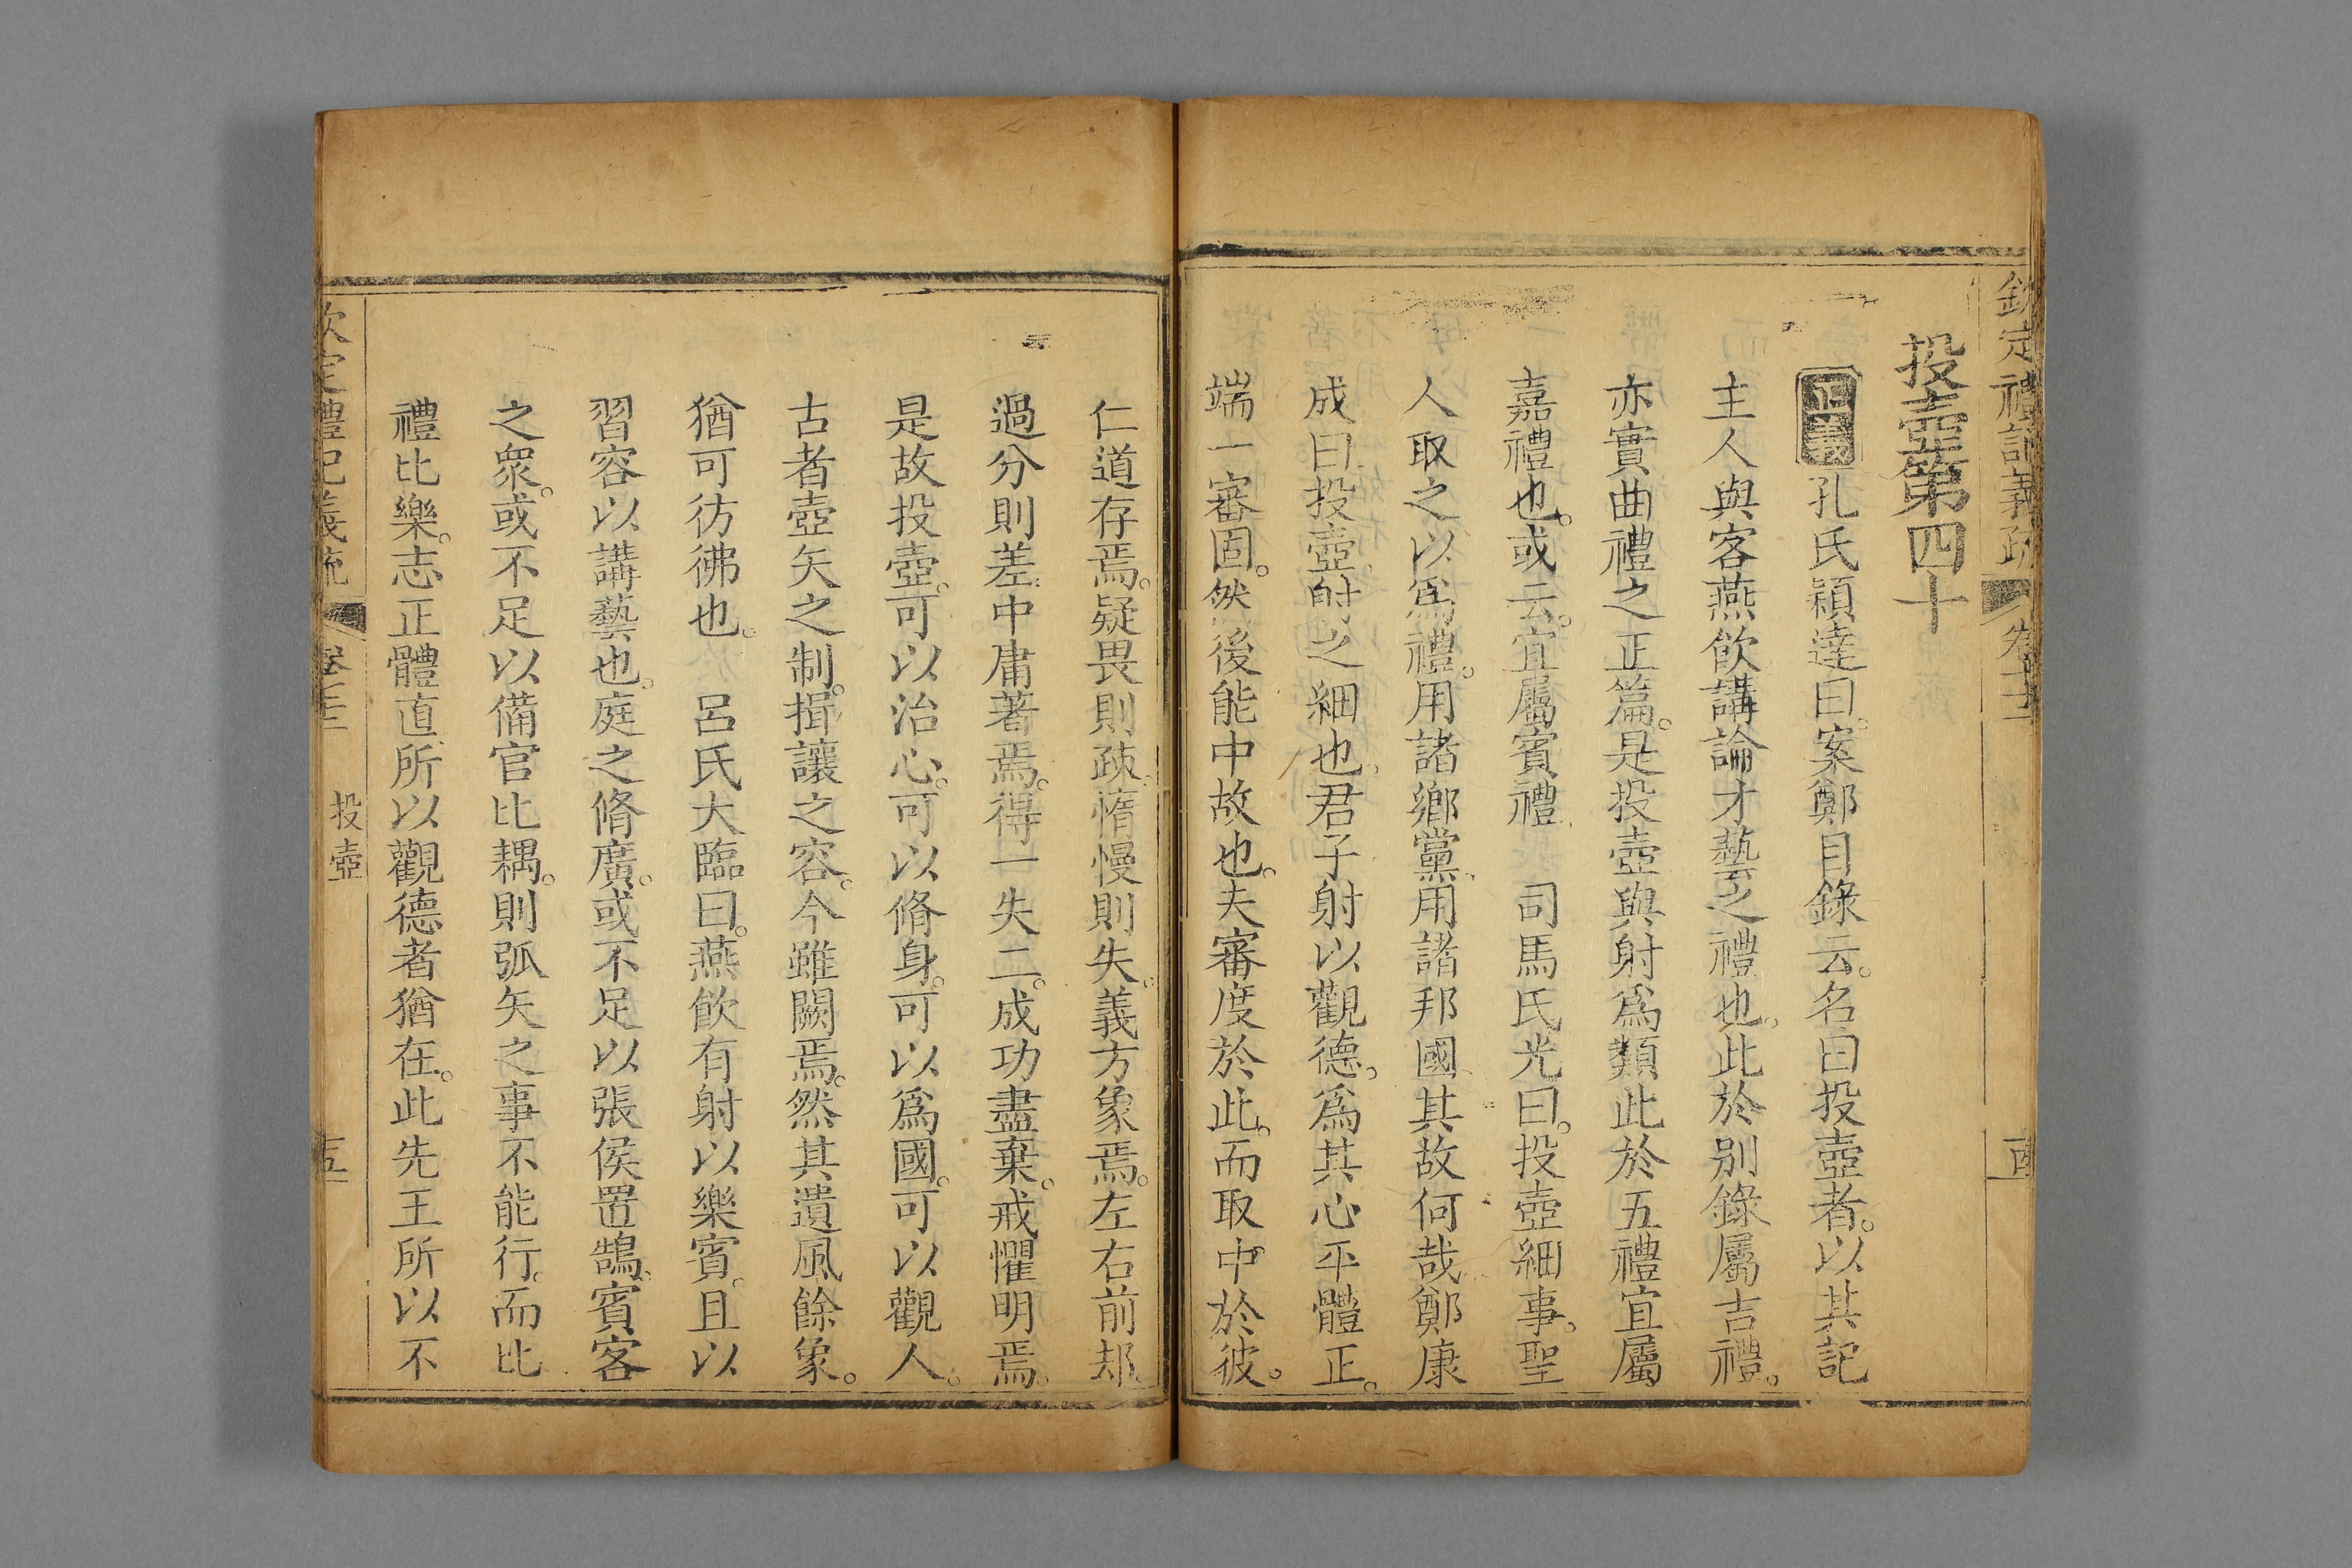 欽定禮記義疏
投壺第四十
正義孔氏穎達曰。案鄭目錄云。名曰投壺者。以其記
主人與客燕飲講論才藝之禮也。此於別錄屬吉禮。
亦實曲禮之正篇。是投壺與射爲類此於五禮宜屬
嘉禮也。或云。宜屬賓禮　司馬氏光曰。投壺細事。聖
人取之以爲禮。用諸鄉黨。用諸邦國。其故何哉鄭康
成曰投壺。射之細也。君子射以觀德。爲其心平體正。
端一審固。然後能中故也。夫審度於此。而取中於彼。
仁道存焉。疑畏則疎。惰慢則失。義方象焉。左右前却。
過分則差。中庸著焉。得一失二。成功盡棄。戒懼明焉。
是故投壺。可以治心。可以脩身。可以爲國。可以觀人。
古者壺矢之制。揖讓之容。今雖闕焉。然其遺風餘象。
猶可彷彿也。　呂氏大臨曰。燕飲有射以樂賓。且以
習容以講藝也。庭之脩廣。或不足以張侯置鵠。賓客
之衆。或不足以備官比耦。則弧矢之事不能行。而比
禮比樂。志正體直。所以觀德者猶在。此先王所以不
欽定禮記義疏
投壺